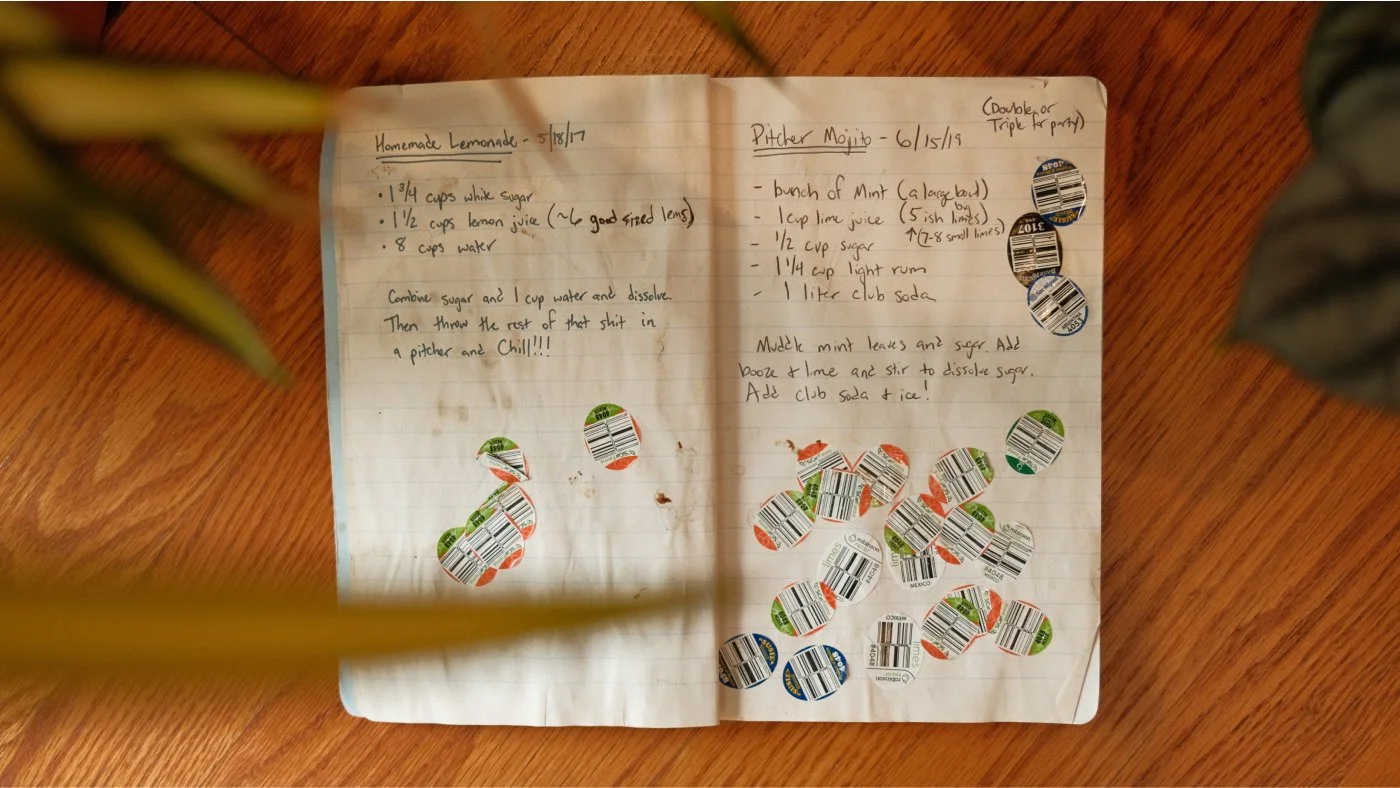 Homemade Lemonade - 5/18/17
• 1 3/4 cups white sugar
• 1 1/2 cups lemon juice (~6 good sized lems)
• 8 cups water
Combine sugar and 1 cup water and dissolve.
Then throw the rest of that shit in
a pitcher and Chill!!!
(Double or
Triple for party)
Pitcher Mojito - 6/15/19
- bunch of Mint (a large bowl)
- 1 cup lime juice (5 ish big limes)
↑(7-8 small limes)
- 1/2 cup sugar
- 1 1/4 cup light rum
- 1 liter club soda
Muddle mint leaves and sugar. Add
booze + lime and stir to dissolve sugar.
Add club soda + ice!
4048
3107
4048
limes
robinson
#4048
MEXICO
robinson
#4048
MEXICO
MEXICO
#4048
limes
robinson
4048